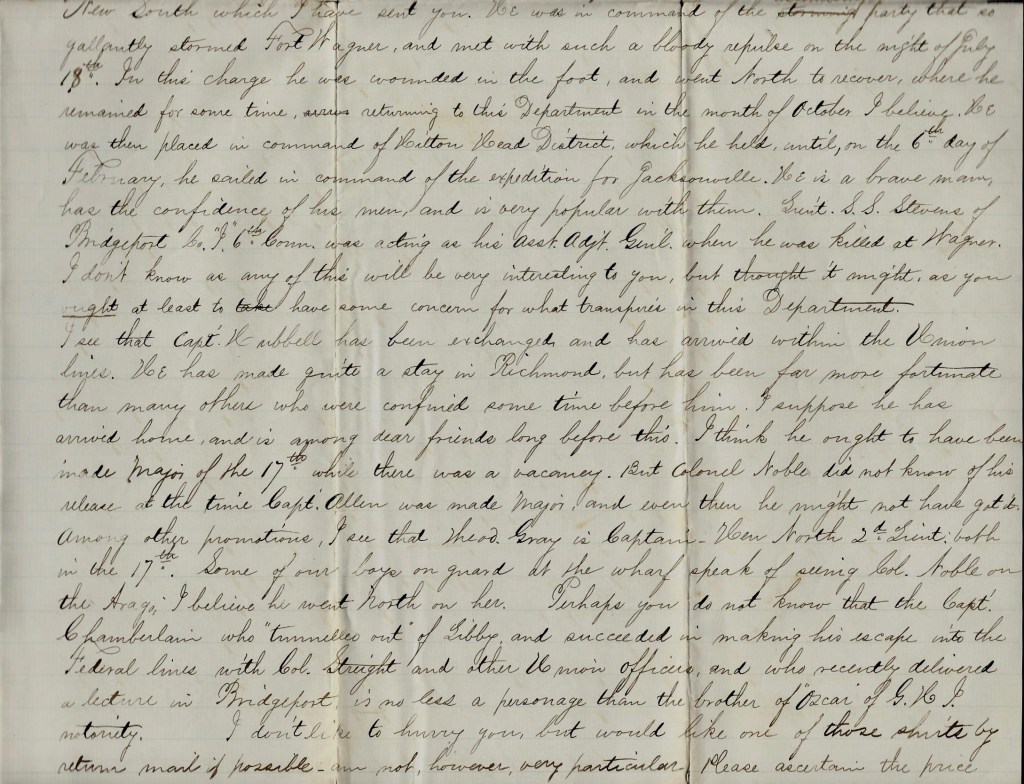 New South which I have sent you. He was in command of the storming party that so
gallantly stormed Fort Wagner, and met with such a bloody repulse on the night of July
18th. In this charge he was wounded in the foot, and went North to recover, where he
remained for some time, returning to this Department in the month of October I believe. He
was then placed in command of Hilton Head District, which he held, until, on the 6th day of
February, he sailed in command of the expedition for Jacksonville. He is a brave man,
has the confidence of his men, and is very popular with them. Lieut. S. S. Stevens of
Bridgeport Co. "I," 6th Conn. was acting as his Asst. Adjt. Gen'l. when he was killed at Wagner.
I don't know as any of this will be very interesting to you, but thought it might, as you
ought at least to take have some concern for what transpires in this Department.
I see that Capt. Hubbell has been exchanged, and has arrived within the Union
lines. He has made quite a stay in Richmond, but has been far more fortunate
than many others who were confined some time before him. I suppose he has
arrived home, and is among dear friends long before this. I think he ought to have been
made Major of the 17th while there was a vacancy. But Colonel Noble did not know of his
release at the time Capt. Allen was made Major, and even then he might not have got it.
Among other promotions, I see that Theod. Gray is Captain - Hen North 2d. Lieut; both
in the 17th. Some of our boys on guard at the wharf speak of seeing Col. Noble on
the Arago; I believe he went North on her. Perhaps you do not know that the Capt.
Chamberlain who "tunnelled out" of Libby, and succeeded in making his escape into the
Federal lines with Col. Streight and other Union officers, and who recently delivered
a lecture in Bridgeport, is no less a personage than the brother of "Oscar" of G. H. I.
notoriety. I don't like to hurry you, but would like one of those shirts by
return mail if possible - am not, however, very particular. Please ascertain the price